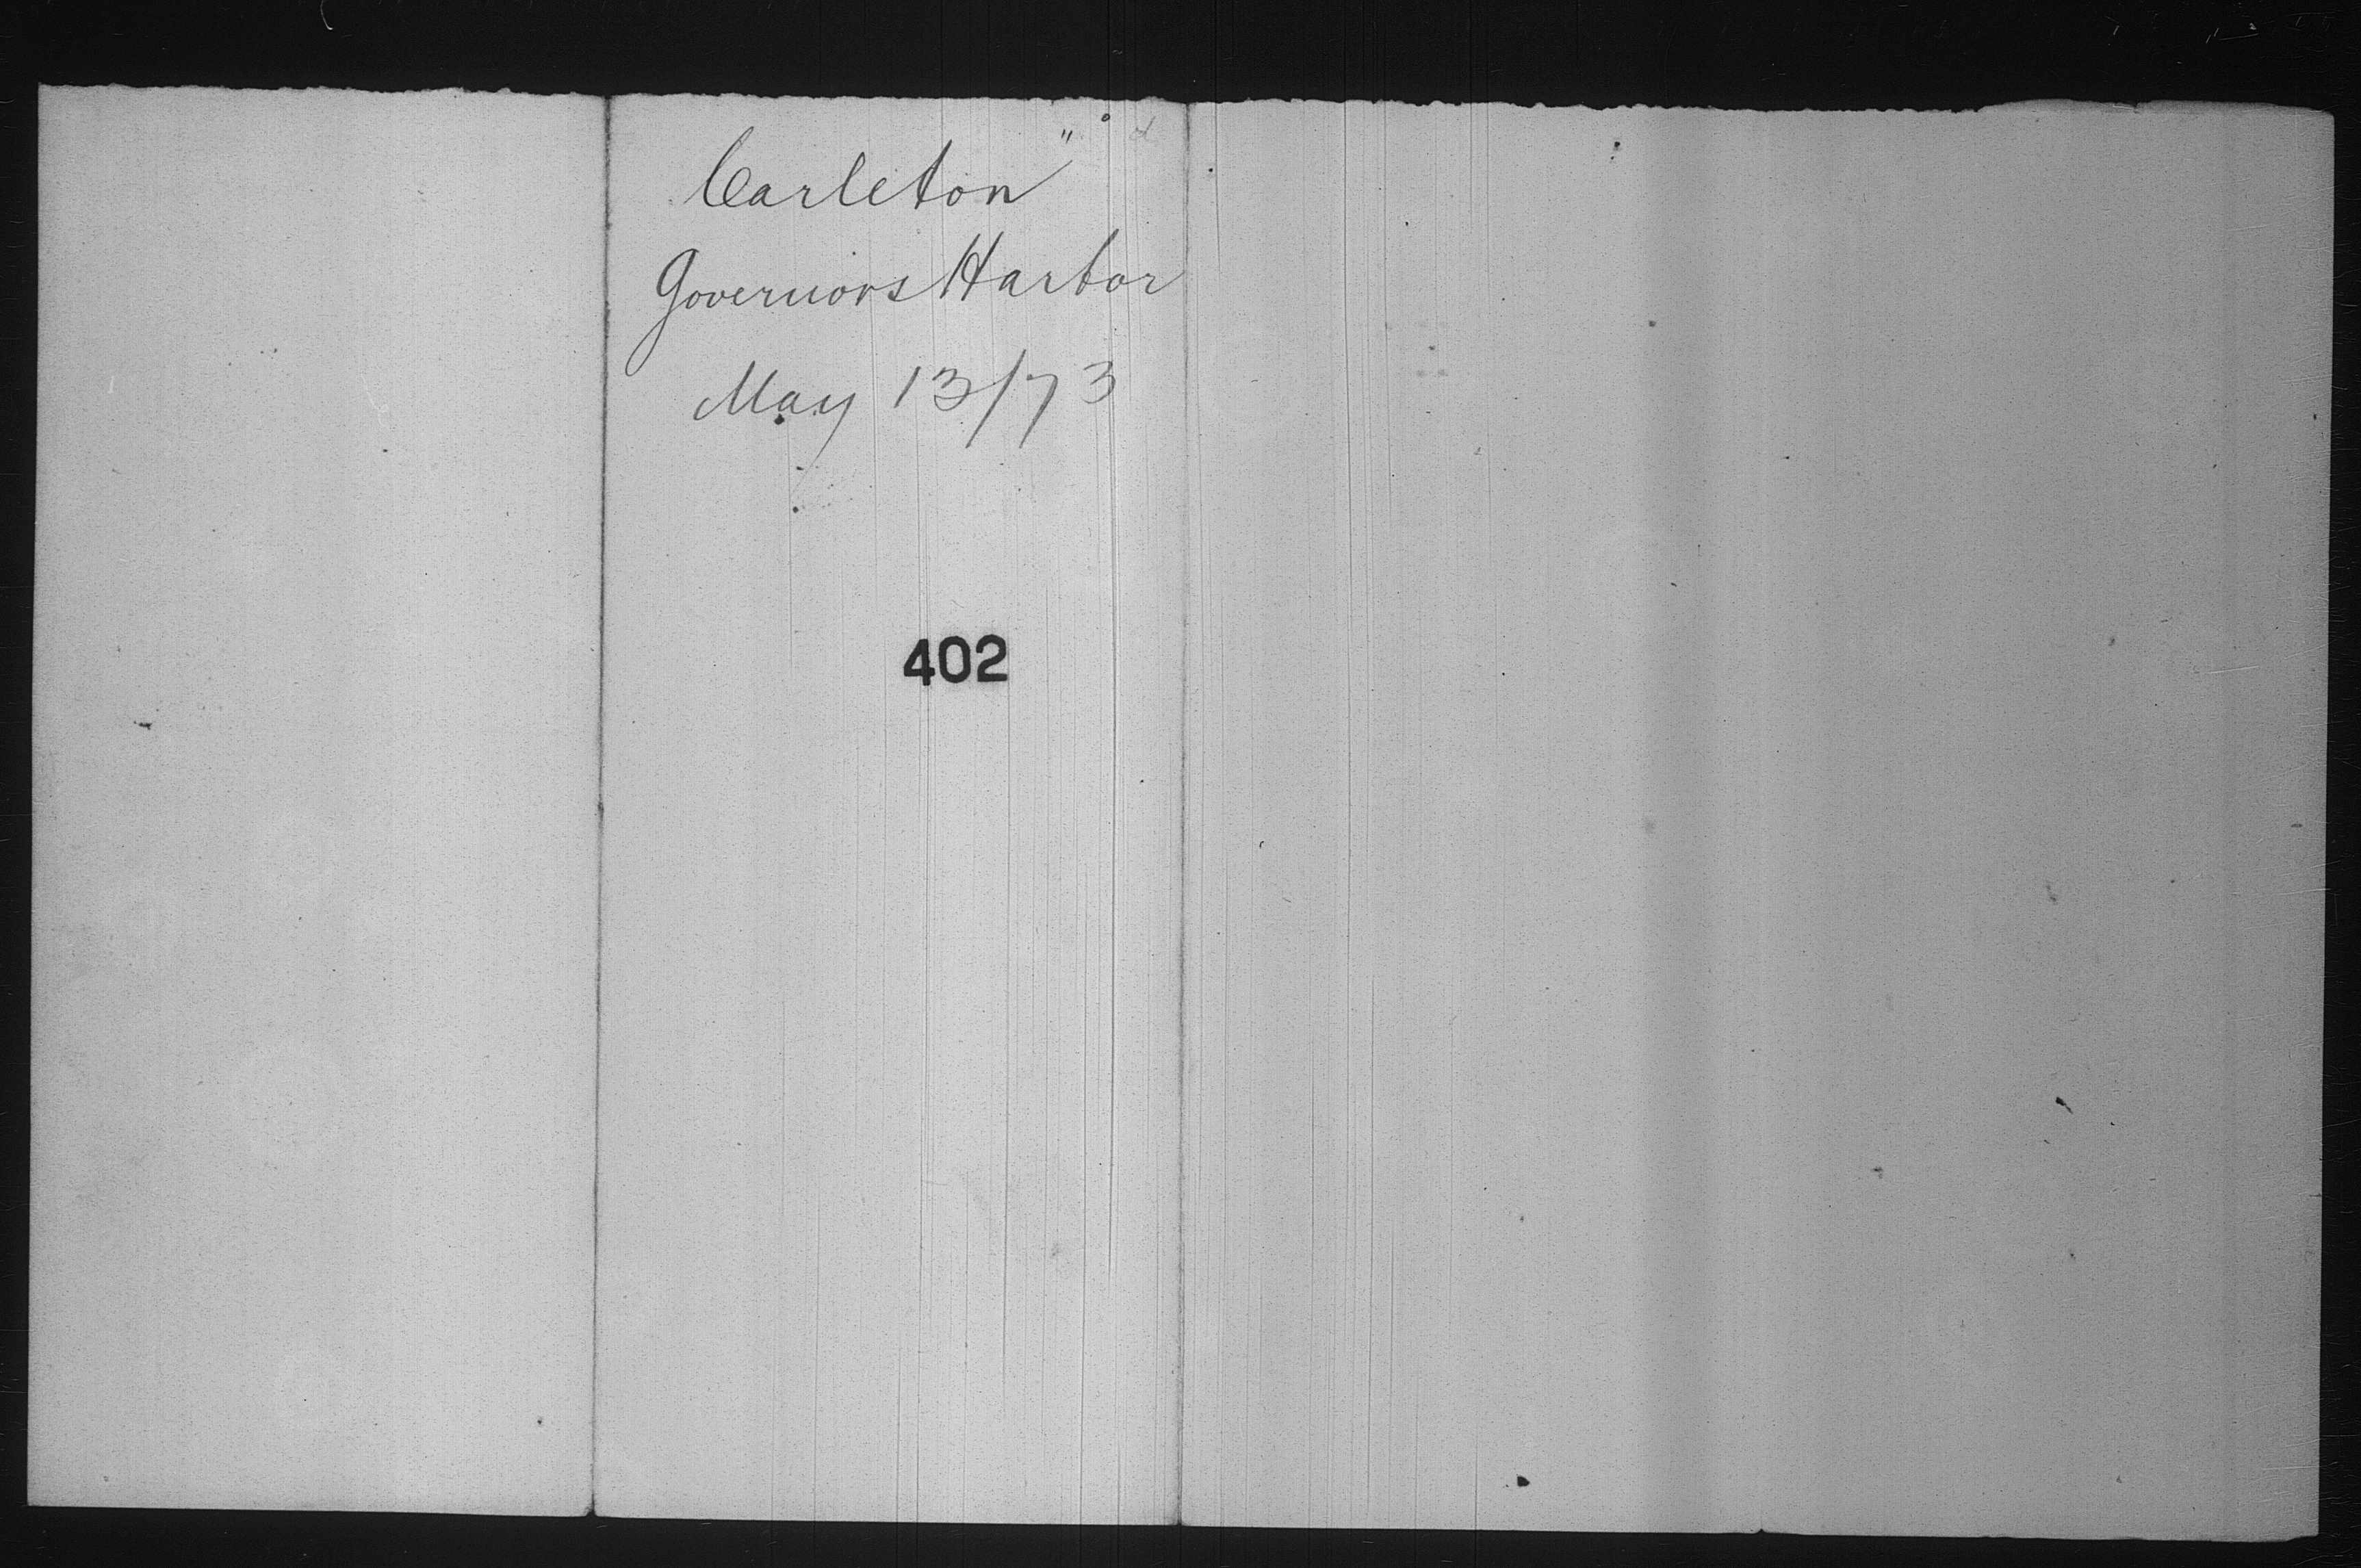 Carleton"
Governors Harbor
May 13/73
402